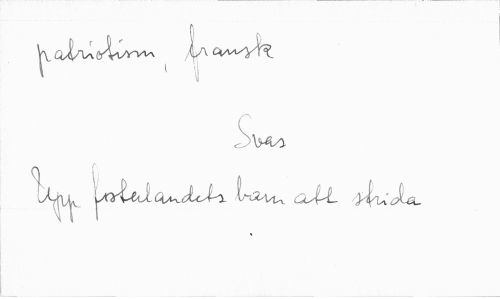 patriotism, fransk
Svas
Upp fosterlandets barn att strida